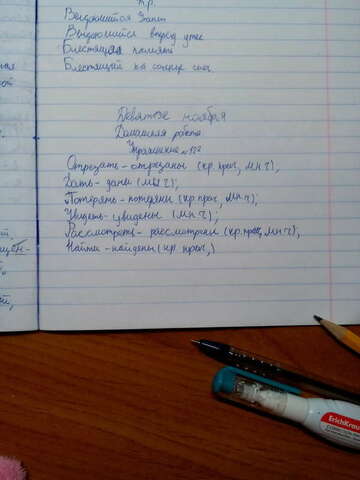 К.р.
Выдающийся
Выдающийся вперёд утес
Блестящая память
Блестящий на солнце снег
Девятое ноября
Домашняя работа
Упражнение №122
Отрезать - отрезаны (кр. прич, мн.ч);
Дать - даны (мн.ч);
Потерять - потеряны (кр. прич, мн.ч);
Увидеть - увидены (мн.ч);
Рассмотреть - рассмотрены (кр. прич, мн.ч);
Найти - найдены (кр. прич,)
ErichKrause